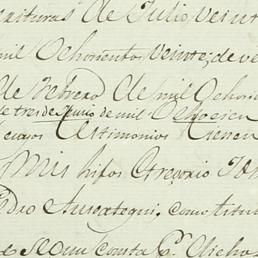 crituras de Julio veint
mil Ochosientos veinte, de ve
de Febrero de mil Ochosi
de tres de Junio de mil Ochocien
cuyos testimonios tienen
Mis hijos Gregorio
Pedro Aurestegui, como titu
consta p.r dichos